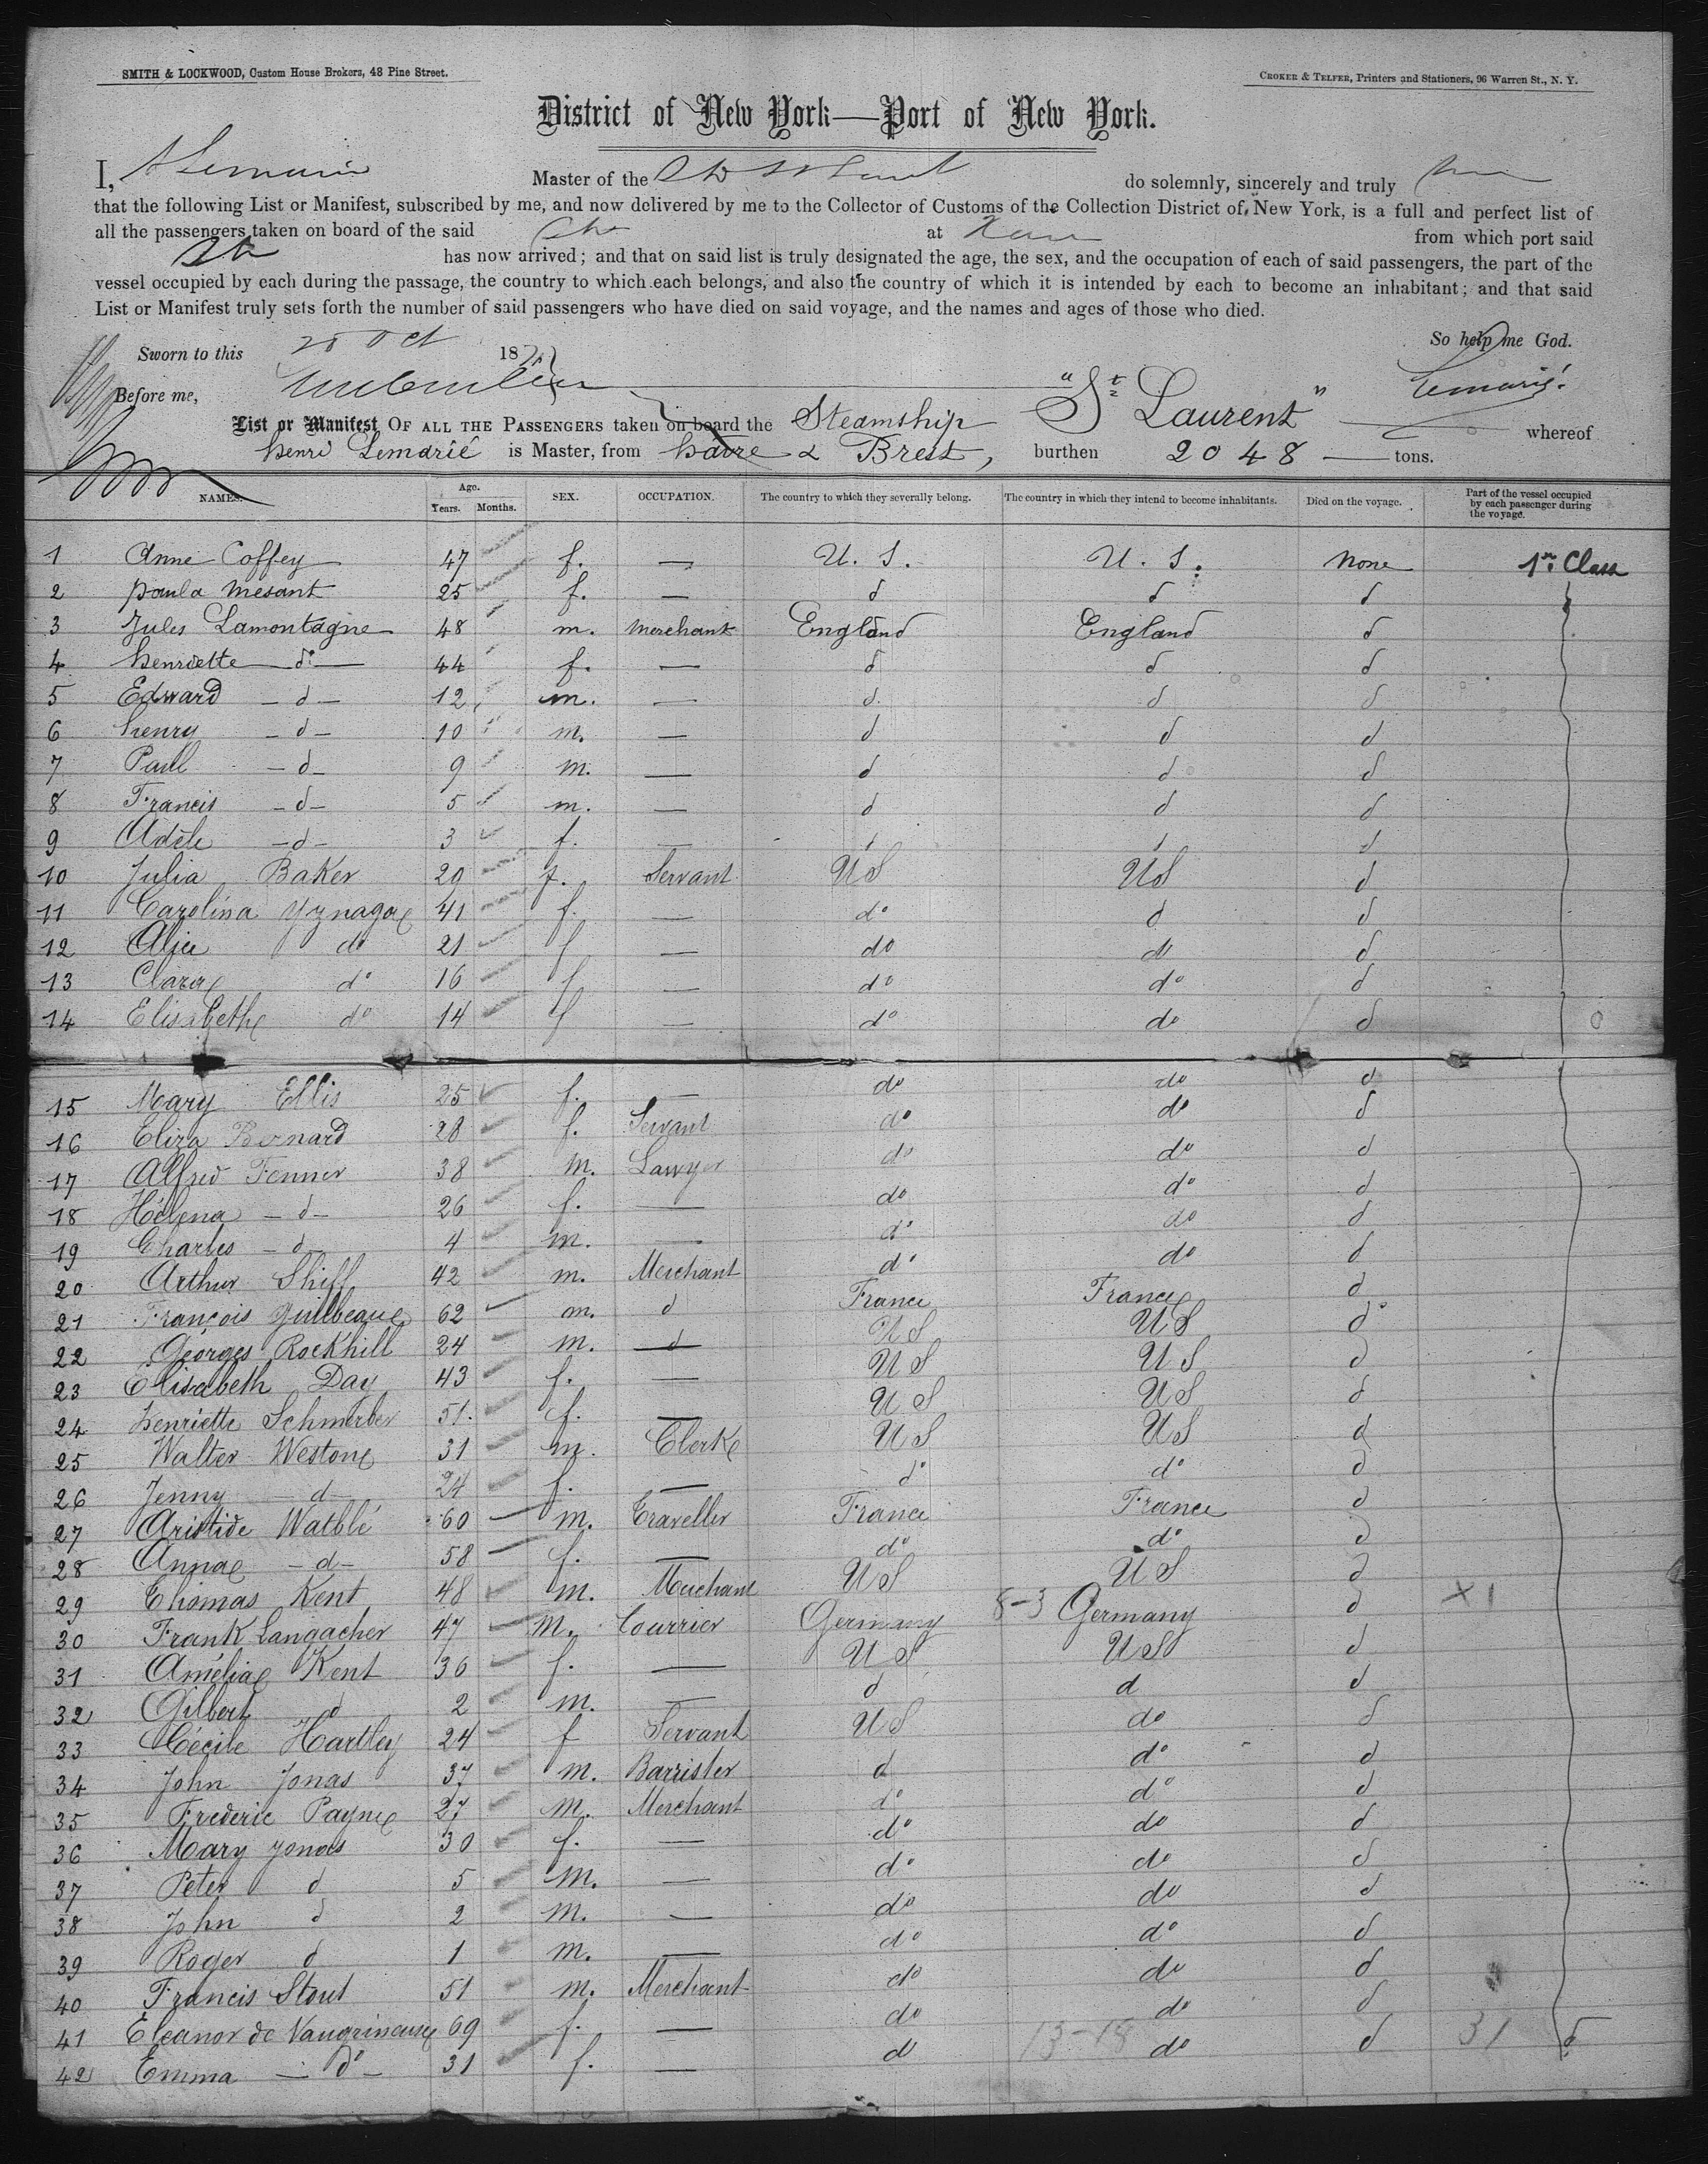 SMITH & LOCKWOOD, Custom House Brokers, 48 Pine Street.
CROKER & TELFER, Printers and Stationers, 96 Warren St., N. Y.
District of New York—Port of New York.
I, Master of the do solemnly, sincerely and truly
that the following List or Manifest, subscribed by me, and now delivered by me to the Collector of Customs of the Collection District of New York, is a full and perfect list of
all the passengers taken on board of the said at from which port said
has now arrived; and that on said list is truly designated the age, the sex, and the occupation of each of said passengers, the part of the
vessel occupied by each during the passage, the country to which each belongs, and also the country of which it is intended by each to become an inhabitant; and that said
List or Manifest truly sets forth the number of said passengers who have died on said voyage, and the names and ages of those who died.
So help me God.
Sworn to this Oct 187
Lemarié
Before me,
List or Manifest OF ALL THE PASSENGERS taken on board the Steamship "St Laurent" whereof
Henri Lemarié is Master, from Havre & Brest, burthen 2048 tons.
NAMES. Age. Years. Months. SEX. OCCUPATION. The country to which they severally belong. The country in which they intend to become inhabitants. Died on the voyage. Part of the vessel occupied by each passenger during the voyage.
1 Anne Coffey 47 f. — U. S. U. S. None 1re Class
2 Paula Mesant 25 f. — d d d
3 Jules Lamontagne 48 m. Merchant England England d
4 Henriette do 44 f. — d d d
5 Edward - d - 12 m. — d d d
6 Henry - d - 10 m. — d d d
7 Paul - d - 9 m. — d d d
8 Francis - d - 5 m. — d d d
9 Adèle - d - 3 f. — d d d
10 Julia Baker 20 f. Servant US US d
11 Carolina Yznaga 41 f. — do d d
12 Alice do 21 f — do do d
13 Clara do 16 f — do do d
14 Elisabeth do 14 f — do do d
15 Mary Ellis 25 f. — do do d
16 Eliza Bernard 28 f. Servant do do d
17 Alfred Fenner 38 m. Lawyer do do d
18 Hélena - d - 26 f. — do do d
19 Charles - d - 4 m. — do do d
20 Arthur Shiff 42 m. Merchant do do d
21 François Guilbeau 62 m. d France France d
22 Georges Rockhill 24 m. d US US do
23 Elisabeth Day 43 f. — US US d
24 Henriette Schmerber 51. f. — US US d
25 Walter Weston 31 m. Clerk US US d
26 Jenny - d - 24 f. — do do d
27 Aristide Watblé 60 m. Traveller France France d
28 Anna - d - 58 f. — do do d
29 Thomas Kent 48 m. Merchant US US d
30 Frank Langacher 47 m. Courrier Germany 8-3 Germany d X1
31 Amélia Kent 36 f. — US US d
32 Gilbert d 2 m. — d d d
33 Cécile Hartley 24 f Servant US do d
34 John Jonas 37 m. Barrister d do d
35 Frederic Payne 27 m. Merchant do do d
36 Mary Jonas 30 f. — do do d
37 Peter d 5 m. — do do d
38 John d 2 m. — do do d
39 Roger d 1 m. — do do d
40 Francis Stout 51 m. Merchant do do d
41 Eleanor de 69 f. — do do d
42 Emma - do - 31 f. — do 13-18 do d 31 d